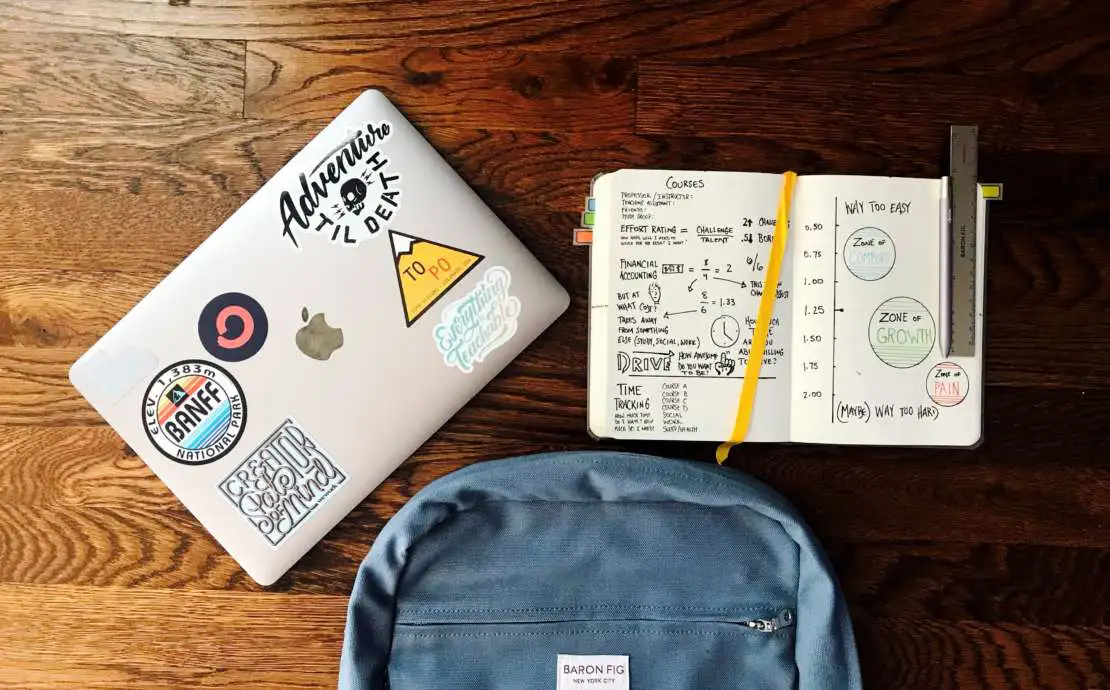 Adventure
'TIL DEATH
TO PO
Everything
is
Teachable
ELEV. 1,383m
BANFF
NATIONAL PARK
CREATOR
State
of Mind
COURSES
PROFESSOR / INSTRUCTOR:
TEACHING ASSISTANT:
FRIENDS:
STUDY GROUP:
EFFORT RATING = CHALLENGE
TALENT
FINANCIAL
ACCOUNTING
= 8
4
= 2
6/6
THIS
BUT AT
WHAT COST?
8
6
= 1.33
TAKES AWAY
FROM SOMETHING
ELSE (STUDY, SOCIAL, WORK)
DRIVE
HOW AWESOME
DO YOU WANT
TO BE?
TIME
TRACKING
COURSE A
COURSE B
COURSE C
COURSE D
SOCIAL
WORK
HOW MUCH TIME
DO I HAVE? HOW
MUCH DO I WANT?
WAY TOO EASY
0.50
0.75
1.00
1.25
1.50
1.75
2.00
ZONE OF
COMFORT
ZONE OF
GROWTH
ZONE OF
PAIN
(MAYBE) WAY TOO HARD
BARON FIG
BARON FIG
NEW YORK CITY